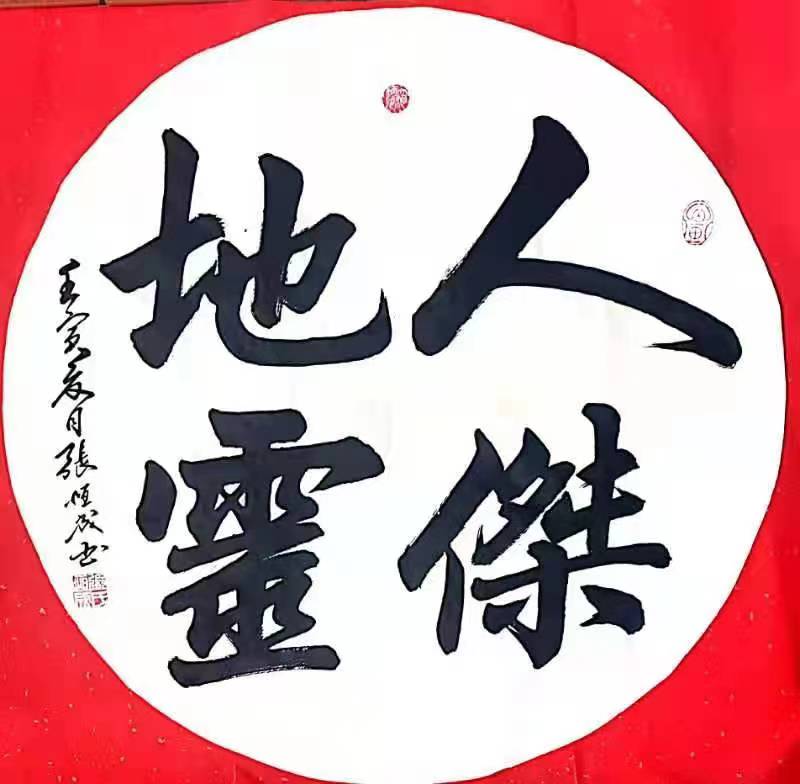 人傑
地靈
壬寅夏月張恒成書